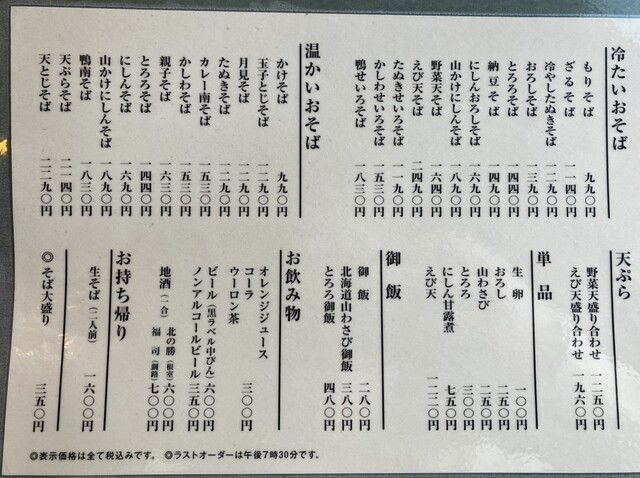 冷たいおそば
もりそば 九九〇円
ざるそば 一一四〇円
冷やしたぬきそば 一二九〇円
おろしそば 一三九〇円
とろろそば 一四四〇円
納豆そば 一四九〇円
にしんおろしそば 一六九〇円
山かけにしんそば 一八九〇円
野菜天そば 一六四〇円
えび天そば 二四九〇円
たぬきせいろそば 一一九〇円
かしわせいろそば 一五三〇円
鴨せいろそば 一八三〇円
温かいおそば
かけそば 九九〇円
玉子とじそば 一二九〇円
月見そば 一二九〇円
たぬきそば 一二九〇円
カレー南そば 一五三〇円
かしわそば 一五三〇円
親子そば 一六三〇円
とろろそば 一四四〇円
にしんそば 一六九〇円
山かけにしんそば 一八九〇円
鴨南そば 一八三〇円
天ぷらそば 二一四〇円
天とじそば 二二九〇円
天ぷら
野菜天盛り合わせ 一二五〇円
えび天盛り合わせ 一九六〇円
単品
生卵 一〇〇円
おろし 二五〇円
山わさび 二五〇円
とろろ 三〇〇円
にしん甘露煮 七五〇円
えび天 一二二〇円
御飯
御飯 二八〇円
北海道山わさび御飯 三八〇円
とろろ御飯 四八〇円
お飲み物
オレンジジュース
コーラ
ウーロン茶 三〇〇円
ビール(黒ラベル中びん) 六〇〇円
ノンアルコールビール 三五〇円
地酒(一合) 北の勝(根室) 六〇〇円
福司(釧路) 七〇〇円
お持ち帰り
生そば(二人前) 一六〇〇円
◎そば大盛り 三五〇円
◎表示価格は全て税込みです。 ◎ラストオーダーは午後7時30分です。